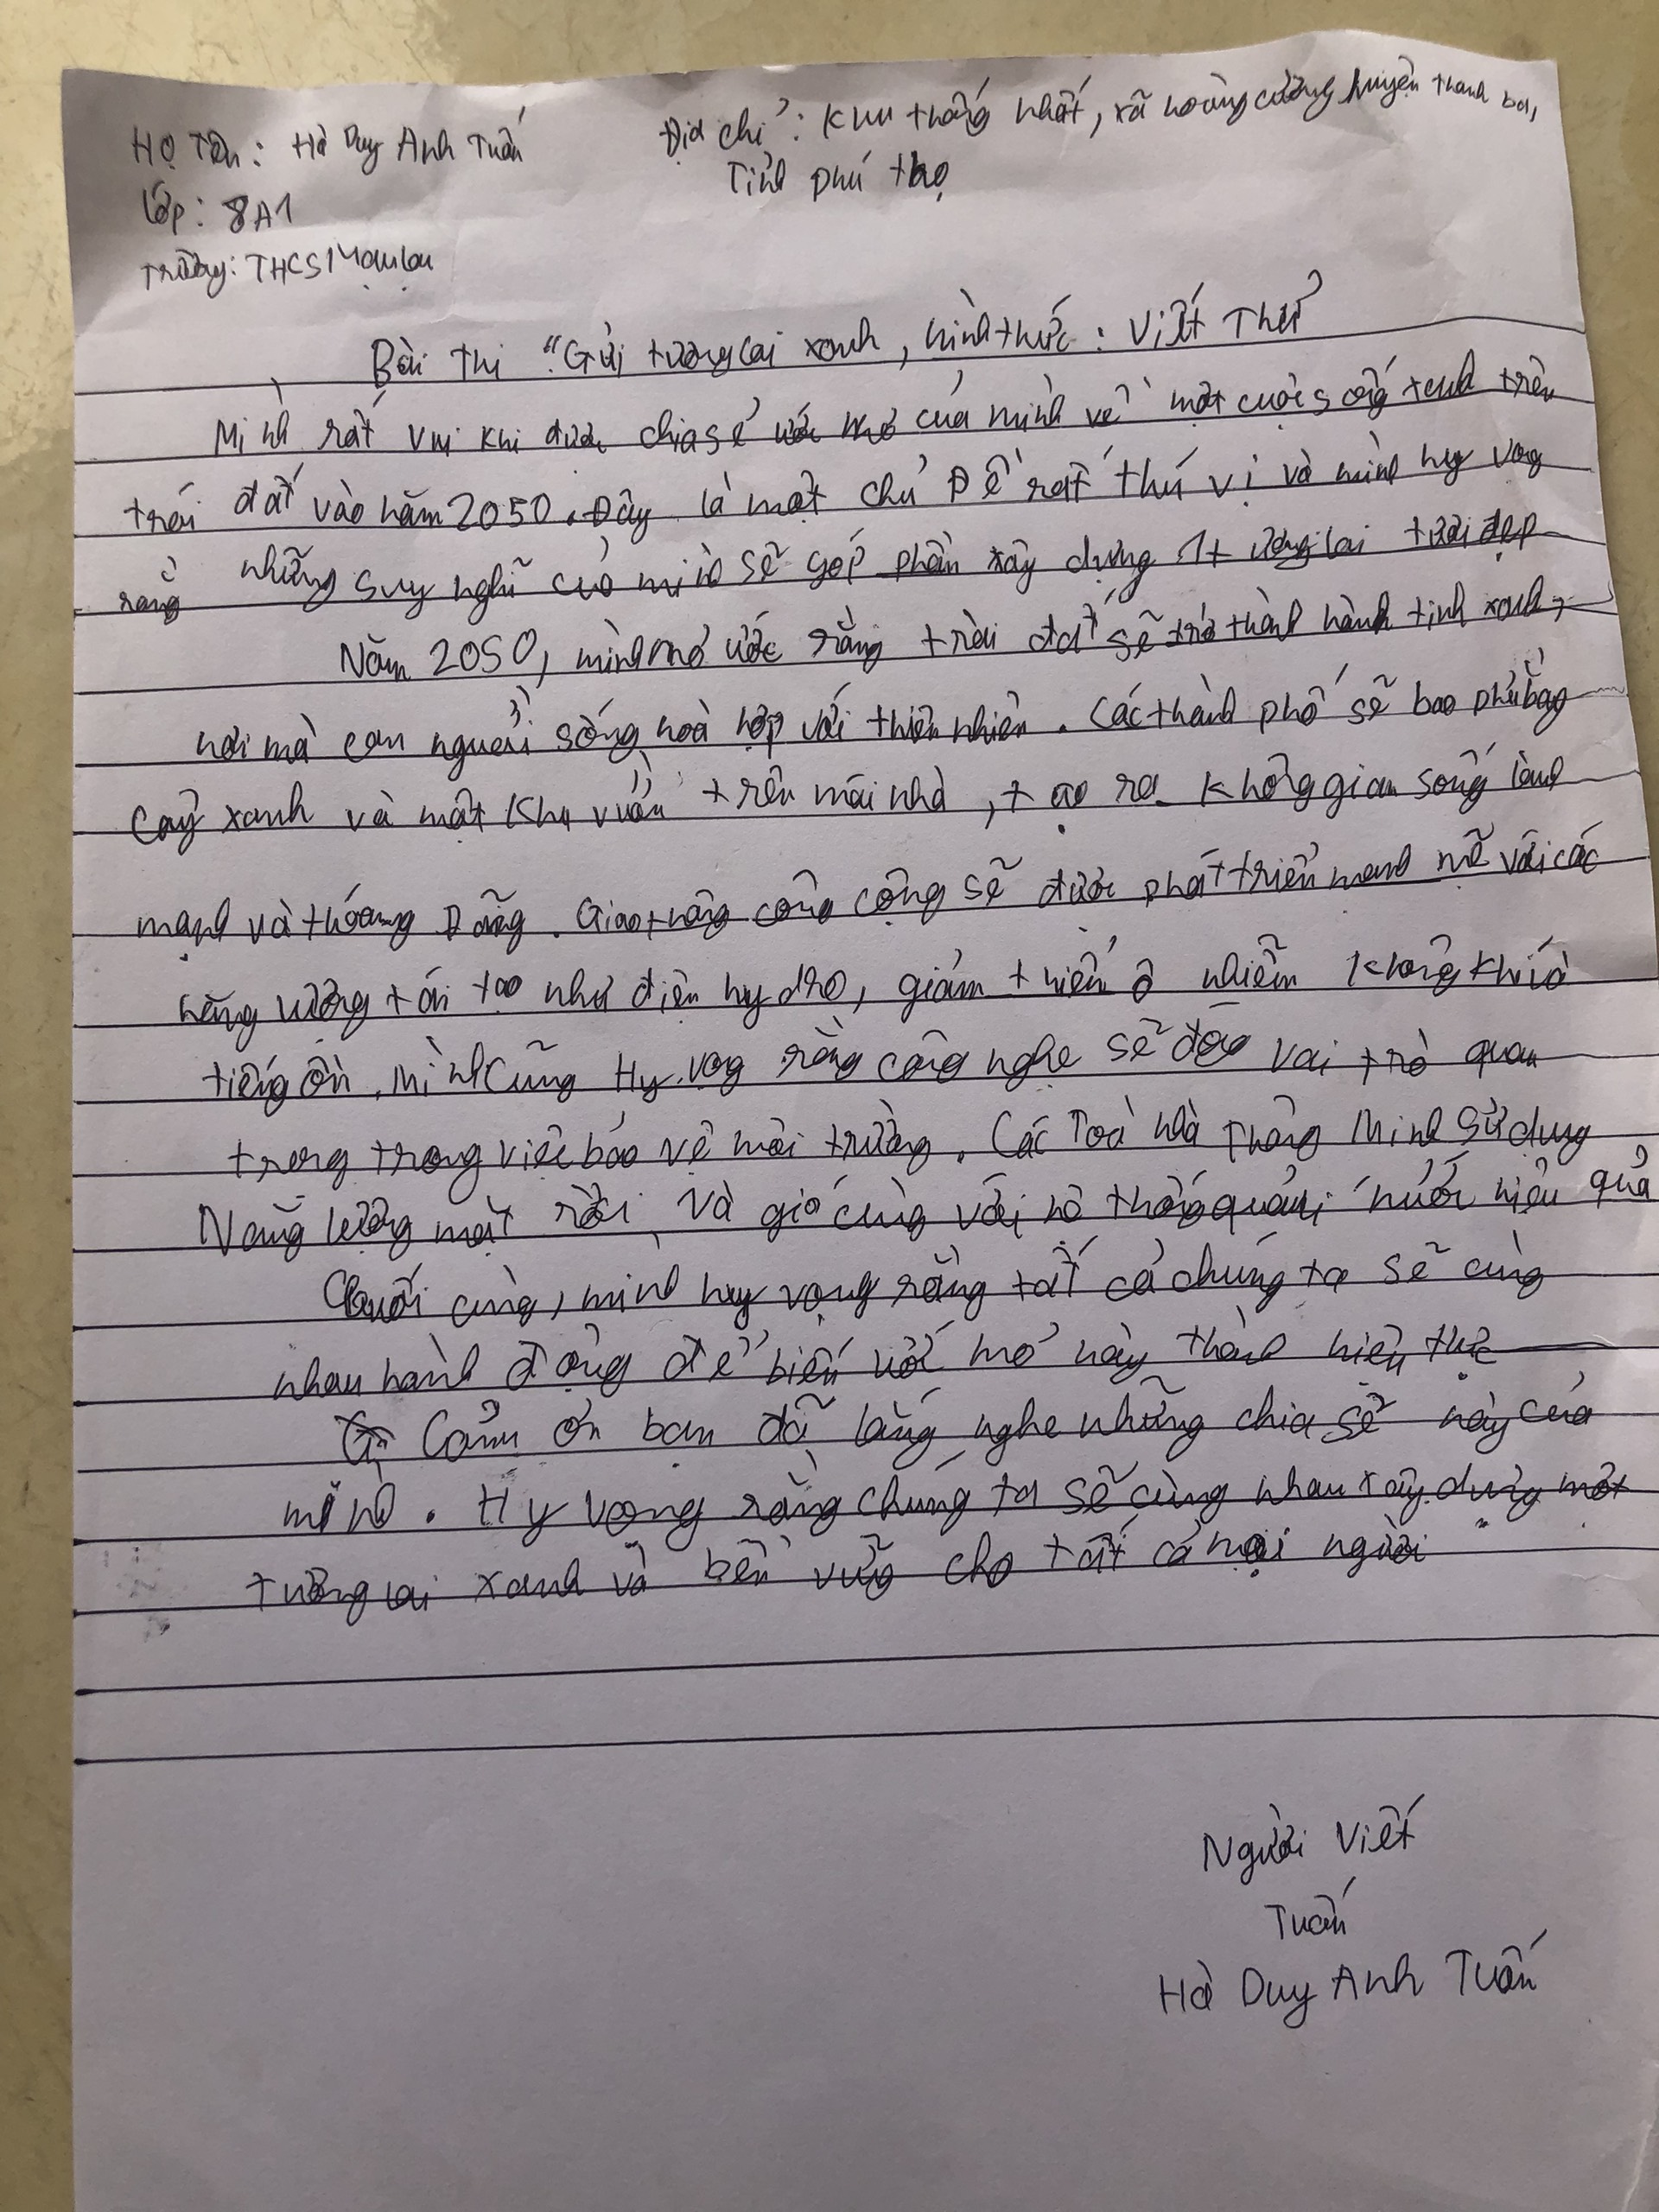 Họ Tên: Hà Duy Anh Tuấn
Địa chỉ: Khu thống nhất, xã hoàng cương, huyện thanh ba,
Tỉnh phú thọ
Lớp: 8A1
Trường: THCS Mạn Lạn
Bài thi "Gửi tương lai xanh, hình thức: Viết Thư
Mình rất vui khi được chia sẻ ước mơ của mình về một cuộc sống xanh trên
trái đất vào năm 2050. Đây là một chủ Đề rất thú vị và mình hy vọng
rằng những suy nghĩ của mình sẽ góp phần xây dựng 1 tương lai tươi đẹp
Năm 2050, mình mơ ước rằng trái đất sẽ trở thành hành tinh xanh,
nơi mà con người sống hoà hợp với thiên nhiên. Các thành phố sẽ bao phủ bằng
cây xanh và một khu vườn trên mái nhà, tạo ra không gian sống lành
mạnh và thoáng Đãng. Giao thông công cộng sẽ được phát triển mạnh mẽ với các
năng lượng tái tạo như điện hydro, giảm thiểu ô nhiễm không khí và
tiếng ồn. Mình cũng Hy vọng rằng công nghệ sẽ đóng vai trò quan
trọng trong việc bảo vệ môi trường. Các Toà nhà Thông Minh Sử dụng
Năng lượng mặt rời và gió cùng với hệ thống quản lí nước hiệu quả
Cuối cùng, mình hy vọng rằng tất cả chúng ta sẽ cùng
nhau hành động để biến ước mơ này thành hiện thực
Cảm ơn bạn đã lắng nghe những chia sẻ này của
mình. Hy vọng rằng chúng ta sẽ cùng nhau xây dựng một
tương lai xanh và bền vững cho tất cả mọi người
Người Viết
Tuấn
Hà Duy Anh Tuấn